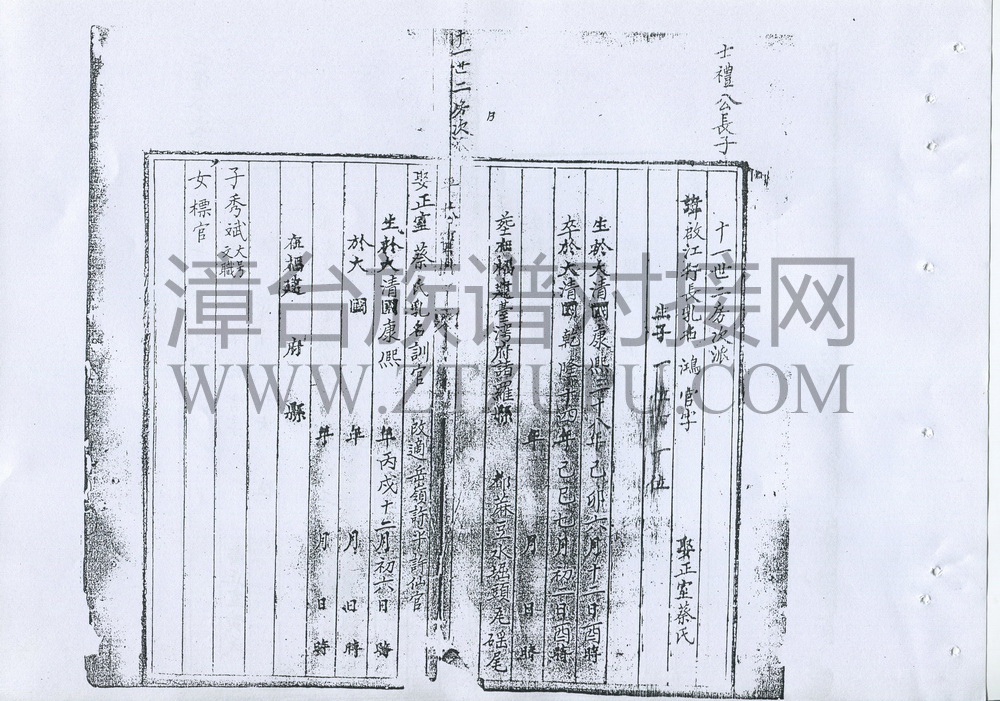 士禮公長子
十一世二房次派
諱啟江行長乳名鴻官字 娶正室蔡氏
生於大清國康熙三十八年己卯六月十二日酉時
卒於大清國乾隆十四年己巳七月初一日酉時
年 月 日 時
葬在福建臺灣府諸羅縣 都蔴豆水堀頭尾磘尾
十一世二房次派
娶正室蔡氏乳名訓官 改適岳嶺 許仙官
生於大清國康熙 年丙戌十二月初六日 時
於大 國 年 月 日 時
年 月 日 時
在福建 府 縣
子秀斌 大房文職
女標官
漳台族谱对接网
WWW.ZTZUPU.COM